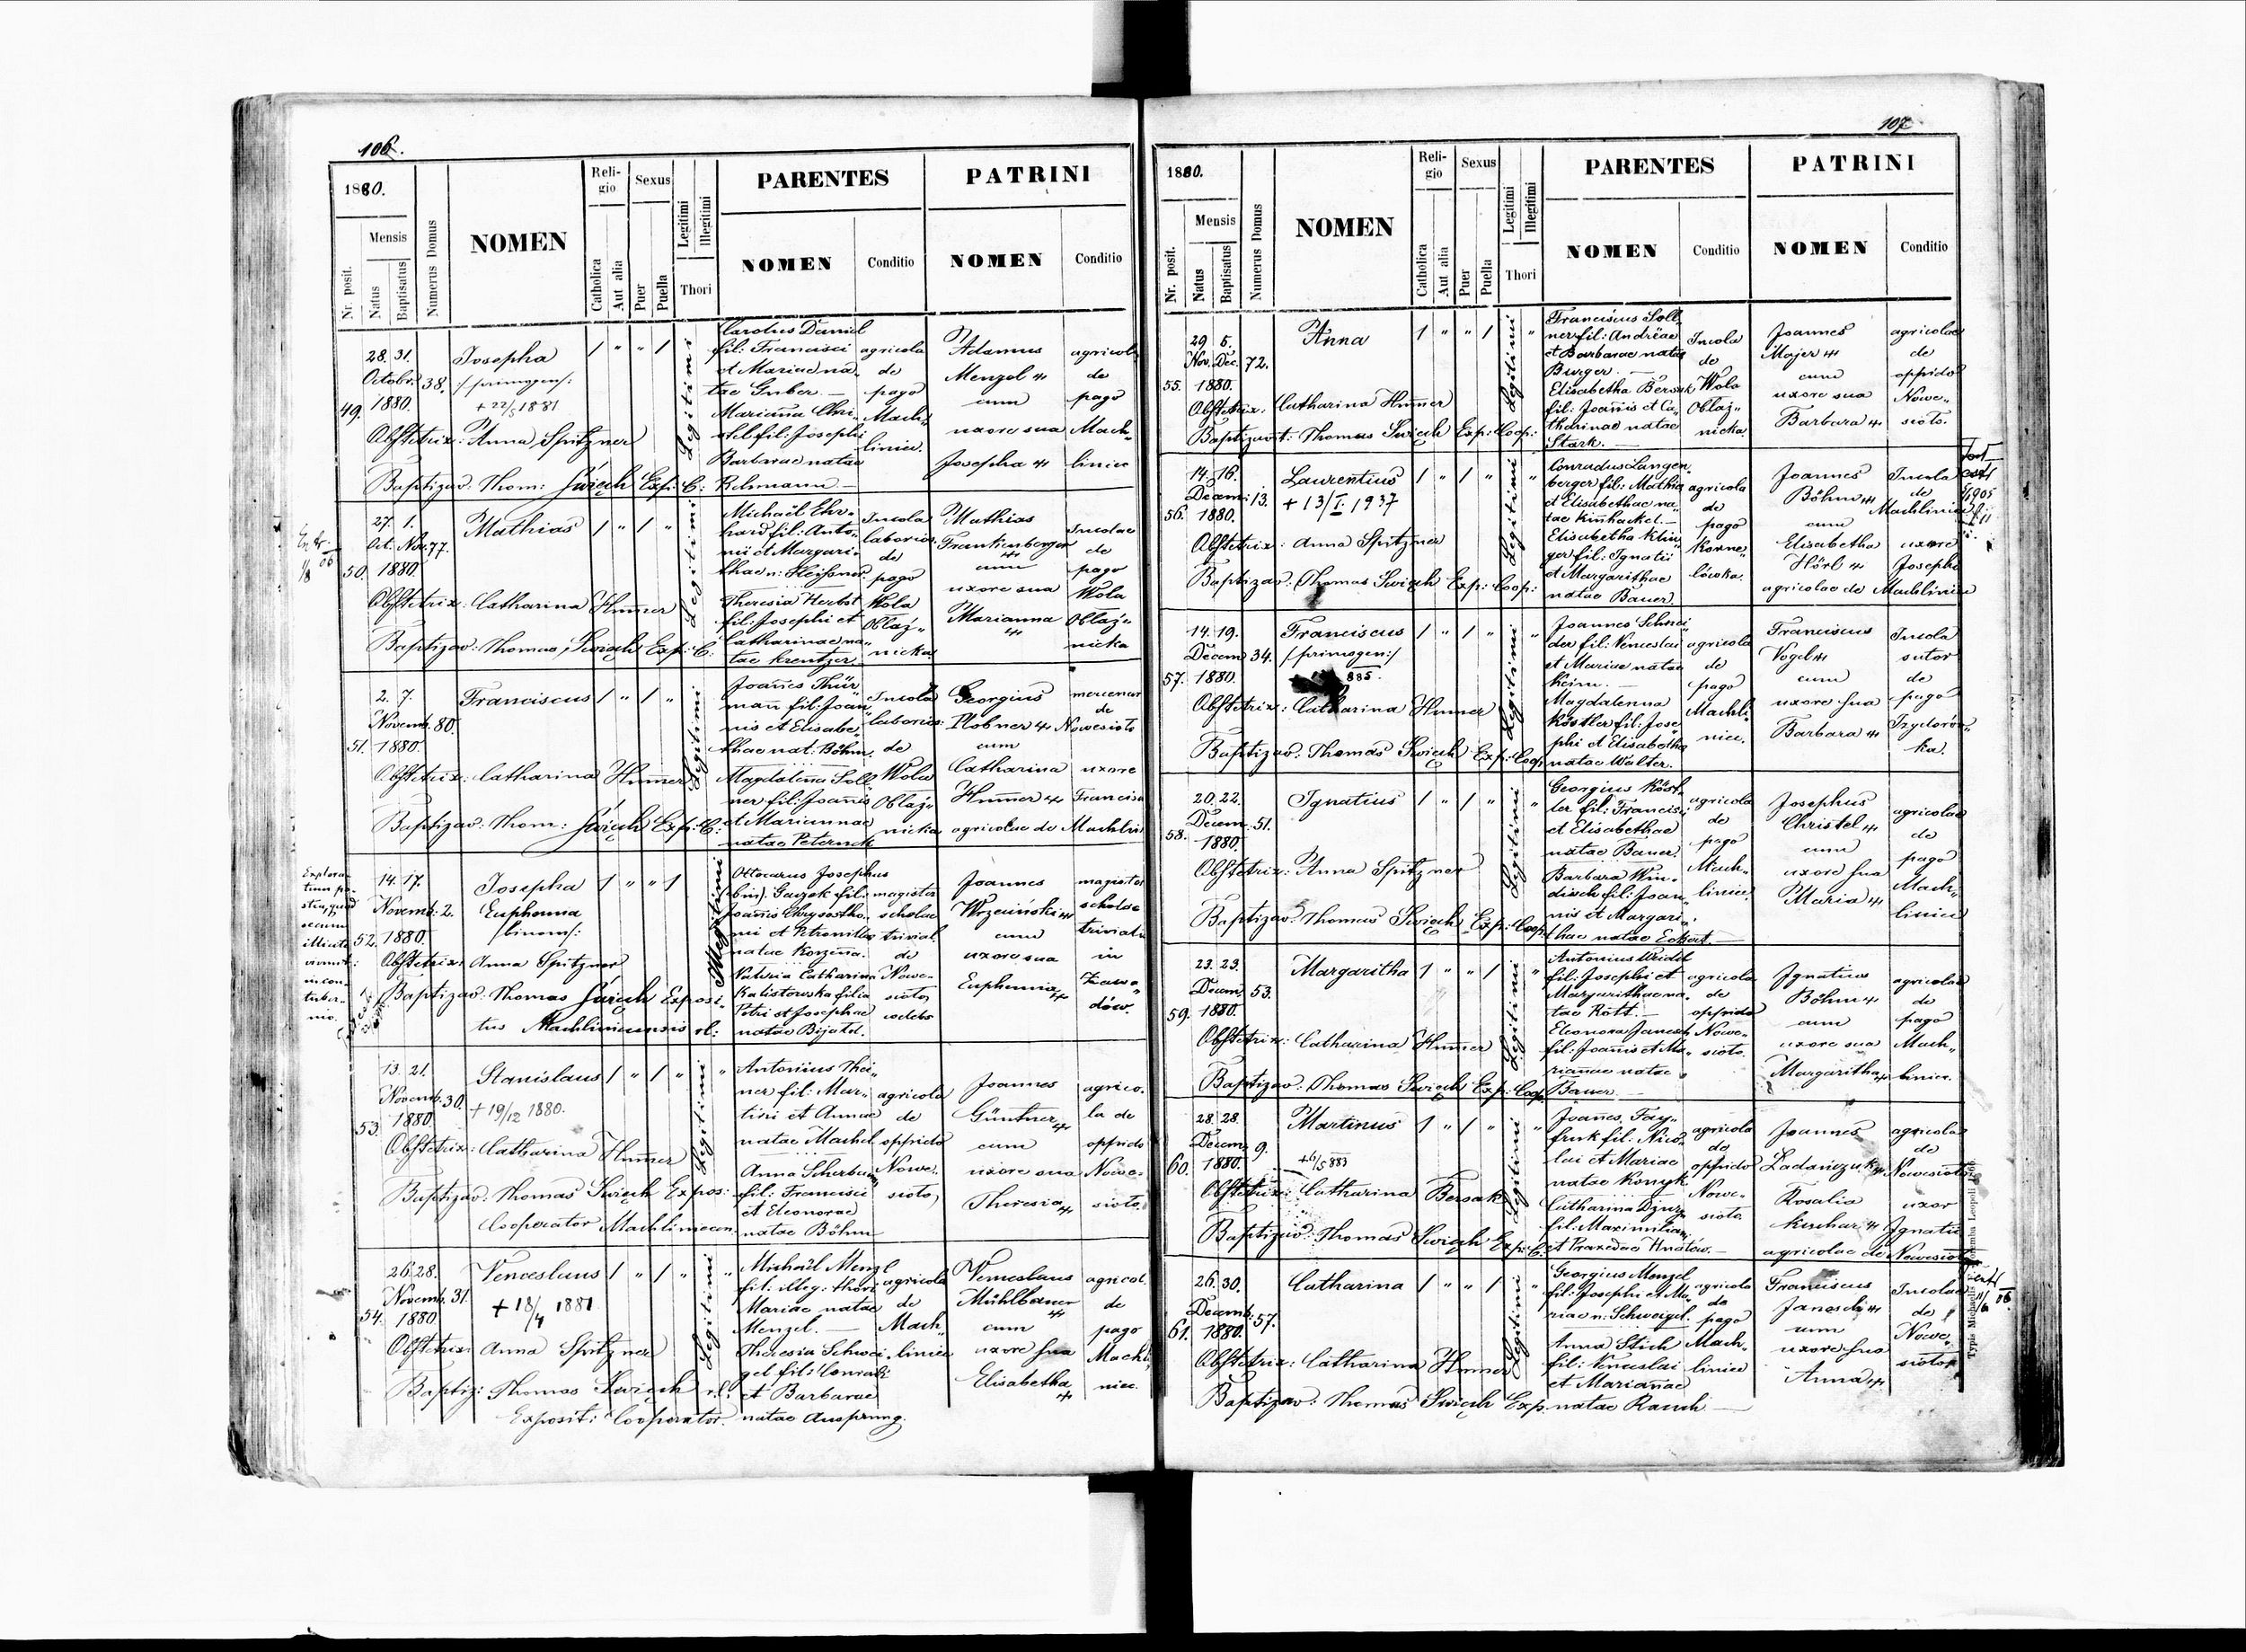 106.
1880.
Nr. posit.
Mensis
Natus
Baptisatus
Numerus Domus
NOMEN
Religio
Catholica
Aut alia
Sexus
Puer
Puella
Legitimi
Illegitimi
Thori
PARENTES
NOMEN
Conditio
PATRINI
NOMEN
Conditio
49.
28. 31.
Octobr.
1880.
38.
Josepha
/: primogen :/
+ 22/5 1881
Obstetrix: Anna Spitzner
Baptizav: Thom: Święch Exp: C:
Legitimi
Carolus Daniel
fil: Francisci
et Mariae na-
tae Gruber. —
Marianna Chri-
stel fil: Josephi
Barbarae natae
Rehmann —
agricola
de
pago
Mach-
liniec.
Adamus
Menzel
cum
uxore sua
Josepha
agricola
de
pago
Mach-
liniec
50.
27. 1.
Oct. Nov.
1880.
77.
Mathias
Obstetrix: Catharina Hum̄er
Baptizav: Thomas Święch Exp: C:
Legitimi
Michaël Ehr-
hard fil: Anto-
nii et Margari-
thae n: Fleißner
Theresia Herbst
fil: Josephi et
Catharinae na-
tae Kreutzer
Incola
laborios.
de
pago
Wola
Obłaź-
nicka
Mathias
Frankenberger
cum
uxore sua
Marianna
Incolae
de
pago
Wola
Obłaź-
nicka
51.
2. 7.
Novemb.
1880.
80.
Franciscus
Obstetrix: Catharina Hum̄er
Baptizav: Thom: Święch Exp: C:
Legitimi
Joannes Thür-
mann fil: Joan-
nis et Elisabe-
thae nat: Böhm.
Magdalena Soll-
ner fil: Joannis
et Mariannae
natae Peternek
Incola
laborios:
de
Wola
Obłaź-
nicka
Georgius
Plöbner
cum
Catharina
Hum̄er
agricolae de Machlin
mercenar
de
Nowesioło
uxore
Francisci
52.
14. 17.
Novemb:
1880.
2.
Josepha
Euphemia
/binom:/
Obstetrix: Anna Spitzner
Baptizav: Thomas Święch Exposi-
tus Machliniecensis rl:
Illegitimi
Ottocarus Josephus
(bin). Gaczek fil:
Joannis Chrysosto-
mi et Petronillae
natae Korzenna.
Valeria Catharina
Kalistowska filia
Petri et Josephae
natae Bijatel.
magister
scholae
trivial.
de
Nowe-
sioło
Joannes
Wrzesiński
cum
uxore sua
Euphemia
magister
scholae
trivialis
in
Zawa-
dów.
53.
13. 21.
Novemb.
1880.
30.
Stanislaus
+ 19/12 1880.
Obstetrix: Catharina Hum̄er
Baptizav: Thomas Święch Expos:
Cooperator Machliniecen.
Legitimi
Antonius Thei-
ner fil: Mar-
tini et Annae
natae Machel
Anna Scherbaum
fil: Francisci
et Eleonorae
natae Böhm
agricola
de
oppido
Nowe-
sioło
Joannes
Güntner
cum
uxore sua
Theresia
agrico-
la de
oppido
Nowe-
sioło.
54.
26. 28.
Novemb.
1880
31.
Venceslaus
+ 18/4 1881
Obstetrix: Anna Spitzner
Baptiz: Thomas Święch rl:
Exposit: Cooperator.
Legitimi
Michaël Menzl
fil: illeg: thori
Mariae natae
Menzel. —
Theresia Schwei-
gel fil: Conradi
et Barbarae
natae Ausprung.
agricola
de
Mach-
liniec
Venceslaus
Mühlbauer
cum
uxore sua
Elisabetha
agricol.
de
pago
Machli-
niec.
107
1880.
Nr. posit.
Mensis
Natus
Baptisatus
Numerus Domus
NOMEN
Religio
Catholica
Aut alia
Sexus
Puer
Puella
Legitimi
Illegitimi
Thori
PARENTES
NOMEN
Conditio
PATRINI
NOMEN
Conditio
55.
29. 5.
Nov. Dec.
1880.
72.
Anna
Obstetrix: Catharina Hum̄er
Baptizavit: Thomas Święch Exp: Coop:
Legitimi
Franciscus Soll-
ner fil: Andreae
et Barbarae natae
Burger. —
Elisabetha Bersak
fil: Joannis et Ca-
tharinae natae
Stark. —
Incola
de
Wola
Obłaź-
nicka.
Joannes
Majer
cum
uxore sua
Barbara
agricolae
de
oppido
Nowe-
sioło.
56.
14. 16.
Decem:
1880.
13.
Laurentius
+ 13/I. 1937
Obstetrix: Anna Spitzner
Baptizav: Thomas Święch Exp: Coop:
Legitimi
Conradus Langen-
berger fil: Mathia
et Elisabethae na-
tae Kinhackel. —
Elisabetha Klin-
ger fil: Ignatii
et Margarithae
natae Bauer.
agricola
de
pago
Korne-
lówka.
Joannes
Böhm
cum
Elisabetha
Hörl
agricolae de Machliniec
Incola
de
Machliniec
uxore
Josephi
57.
14. 19.
Decem
1880.
34.
Franciscus
/:primogen:/
885.
Obstetrix: Catharina Hum̄er
Baptizav: Thomas Święch Exp: Coop
Legitimi
Joannes Schnei-
der fil: Venceslai
et Mariae natae
Keim. —
Magdalenna
Köstler fil: Jose-
phi et Elisabetha
natae Walter.
agricola
de
pago
Machli-
niec.
Franciscus
Vogel
cum
uxore sua
Barbara
Incola
sutor
de
pago
Izydorów-
ka.
58.
20. 22.
Decem.
1880.
51.
Ignatius
Obstetrix: Anna Spitzner
Baptizav: Thomas Święch Exp: Coop:
Legitimi
Georgius Köst-
ler fil: Francisci
et Elisabethae
natae Bauer.
Barbara Win-
disch fil: Joan-
nis et Margari-
thae natae Eckert. —
agricola
de
pago
Mach-
liniec.
Josephus
Christel
cum
uxore sua
Maria
agricolae
de
pago
Mach-
liniec
59.
23. 23.
Decem.
1880.
53.
Margaritha
Obstetrix: Catharina Hum̄er
Baptizav: Thomas Święch Exp: Coop
Legitimi
Antonius Weidel
fil: Josephi et
Margarithae na-
tae Rött. —
Eleonora Janesch
fil: Joannis et Ma-
riannae natae
Bauer. —
agricola
de
oppido
Nowe-
sioło.
Ignatius
Böhm
cum
uxore sua
Margaritha
agricolae
de
pago
Mach-
liniec.
60.
28. 28.
Decem.
1880.
9.
Martinus
+ 6/5 883
Obstetrix: Catharina Bersak
Baptizav: Thomas Święch Exp: C:
Legitimi
Joannes Fay-
fruk fil: Nico-
lai et Mariae
natae Konyk.
Catharina
fil: Maximilian
et Praxedae Hnatów. —
agricola
de
oppido
Nowe-
sioło.
Joannes
Ladańczuk
Rosalia
Kuchar
agricolae de Nowesioło
agricola
de
Nowesioło
uxor
Ignatii
61.
26. 30.
Decemb.
1880.
57.
Catharina
Obstetrix: Catharina Hum̄er
Baptizav: Thomas Święch Exp.
Legitimi
Georgius Menzel
fil: Josephi et Ma-
riae n: Schweigel.
Anna Stich
fil: Venceslai
et Mariannae
natae Rauch —
agricola
de
pago
Mach-
liniec
Franciscus
Janesch
cum
uxore sua
Anna
Incolae
de
Nowe-
sioło